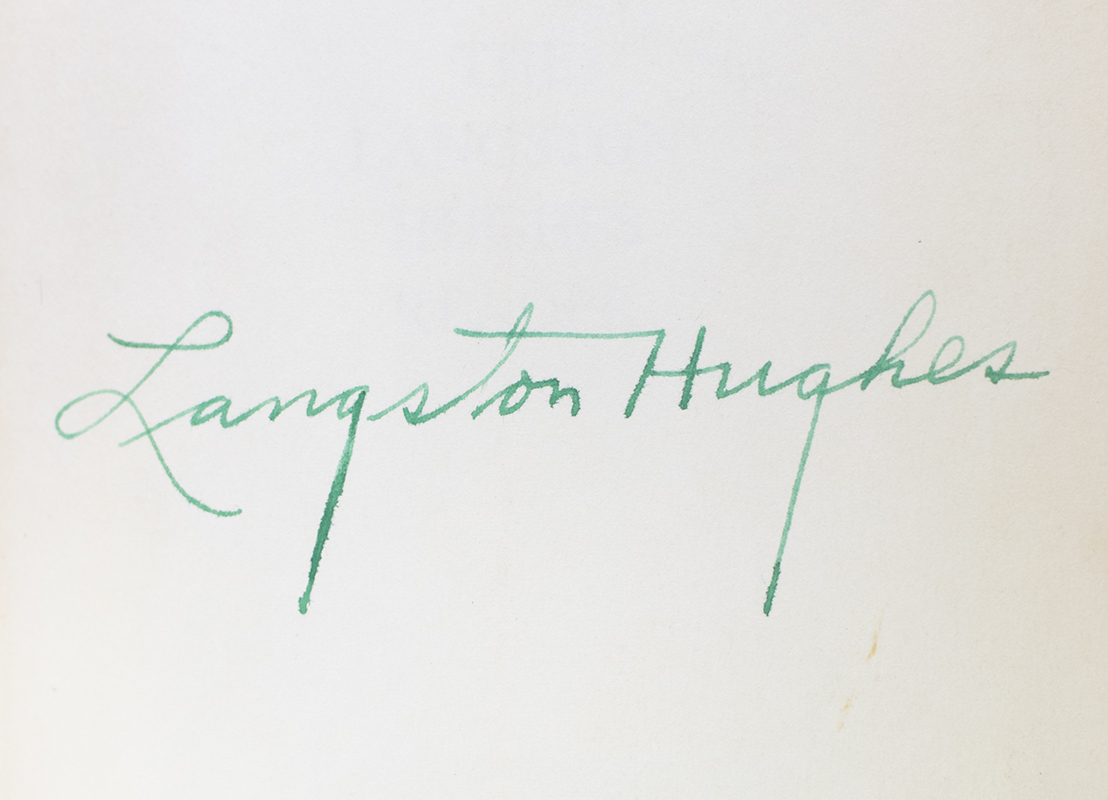 Langston Hughes